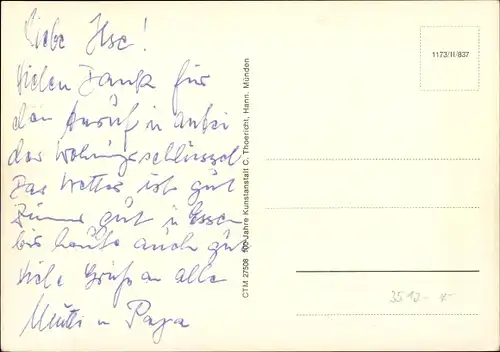 Liebe Ilse!
Vielen Dank für
den Anruf u anbei
der Wohnungsschlüssel
Das Wetter ist gut
Zimmer gut u Essen
bis heute auch gut
Viele Grüße an alle
Mutti u Papa
CTM 27508 100 Jahre Kunstanstalt C. Thoericht, Hann. Münden
1173/II/837